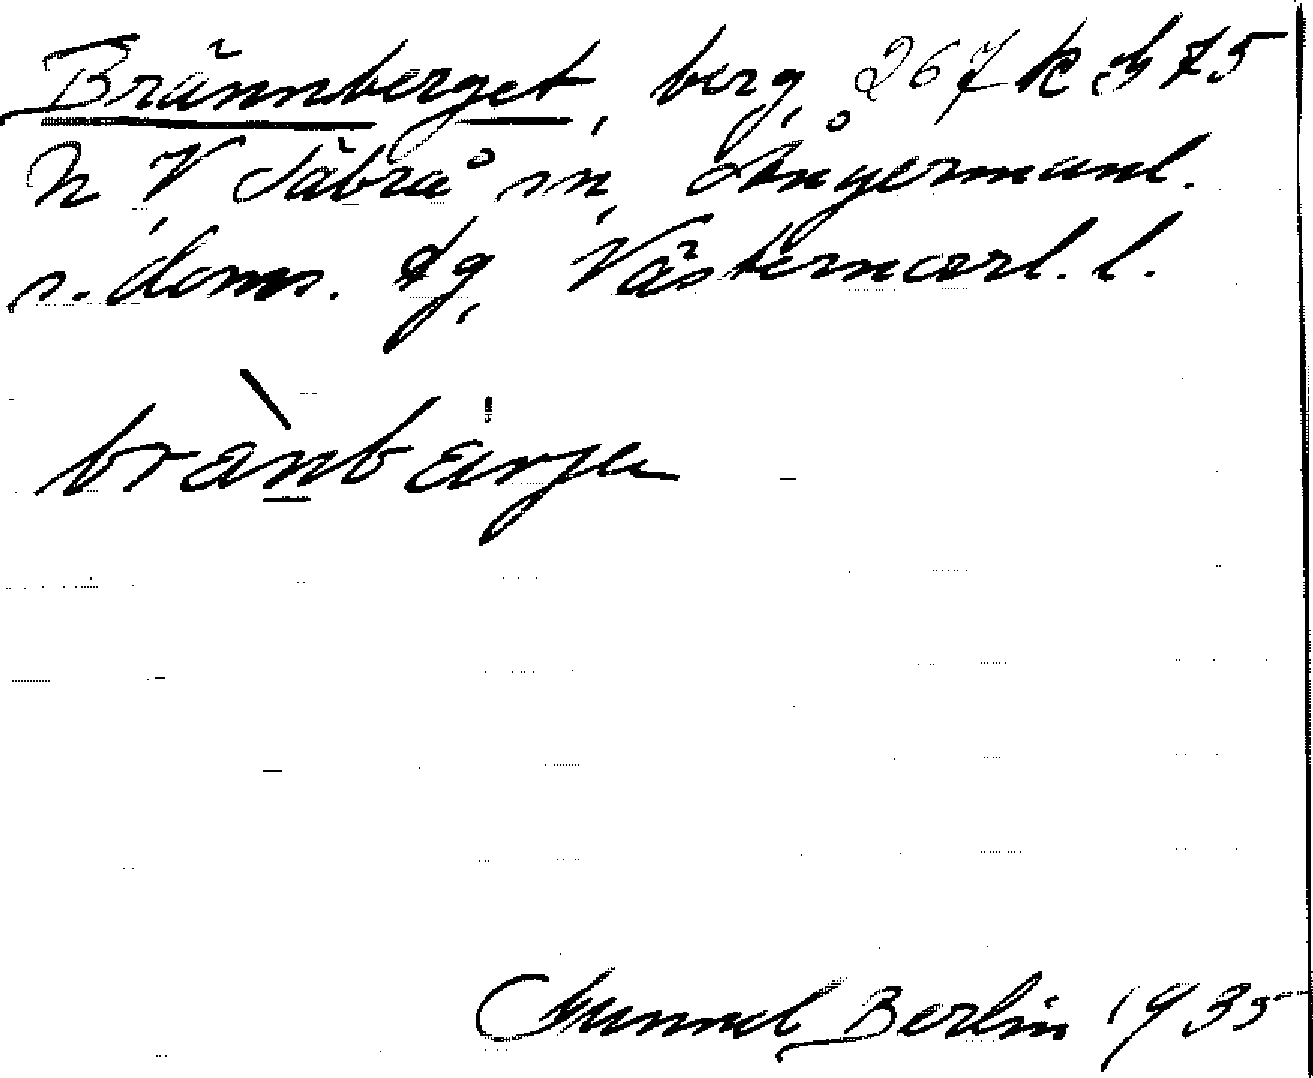 Brännberget, berg, 267 k
N V Säbrå sn, Ångermanl.
s. doms. dg, Västernorrl. l.
brànbärje
Gunnel Berlin 1935